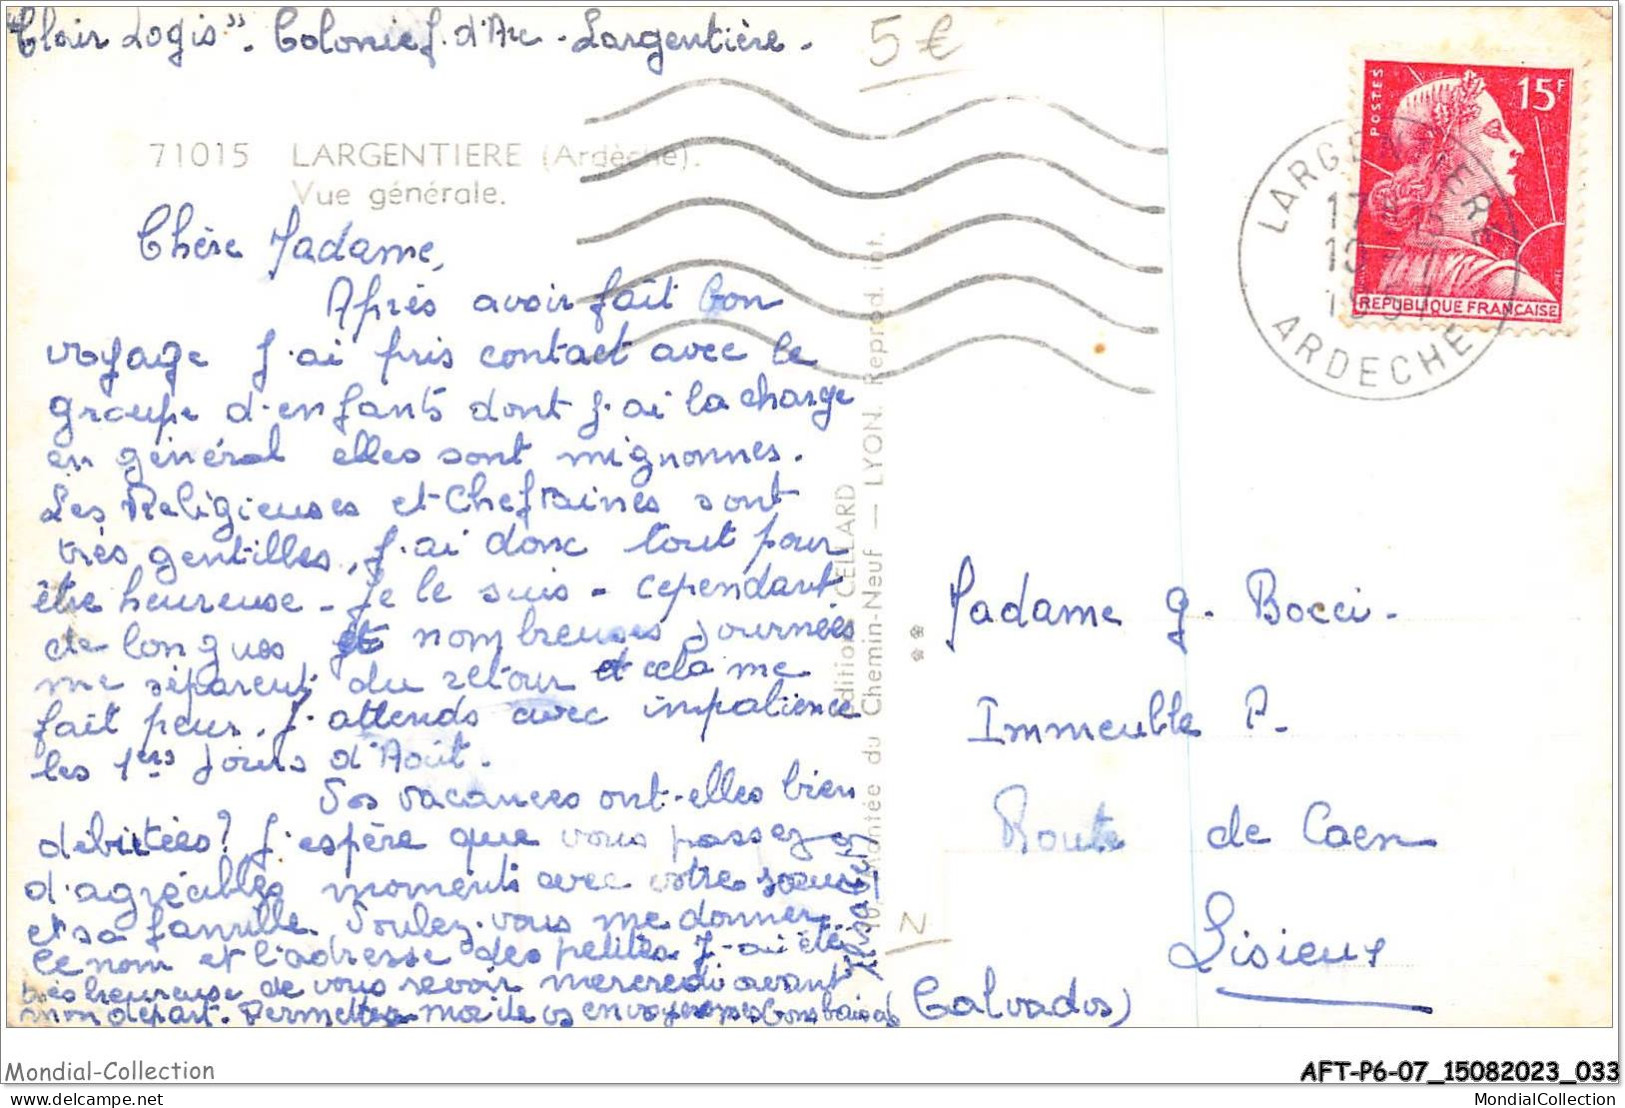 "Clair Logis". Colonie J. d'Arc - Largentière -
5€
71015 LARGENTIERE (Ardèche).
Vue générale.
Chère Madame,
Après avoir fait bon
voyage J'ai pris contact avec le
groupe d'enfants dont J'ai la charge
en général elles sont mignonnes.
Les Religieuses et Cheftaines sont
très gentilles, J'ai donc tout pour
être heureuse - Je le suis - cependant
de longues et nombreuses journées
me séparent du retour et cela me
fait peur. J'attends avec impatience
les 1ers jours d'Août.
Vos vacances ont-elles bien
débutées? J'espère que vous passez
d'agréables moments avec votre soeur
et sa famille. Voulez-vous me donner
le nom et l'adresse des petites. J'ai été
très heureuse de vous revoir mercredi avant
mon départ. Permettez moi de vs envoyer mes bons baisers
Editions CELLARD
Montée du Chemin-Neuf — LYON. Reprod. int.
**
N
POSTES
15F
REPUBLIQUE FRANÇAISE
LARGENTIERE
ARDECHE
Madame G. Bocci -
Immeuble P.
Route de Caen
Lisieux
(Calvados)
Mondial-Collection
AFT-P6-07_15082023_033
delcampe.net
MondialCollection